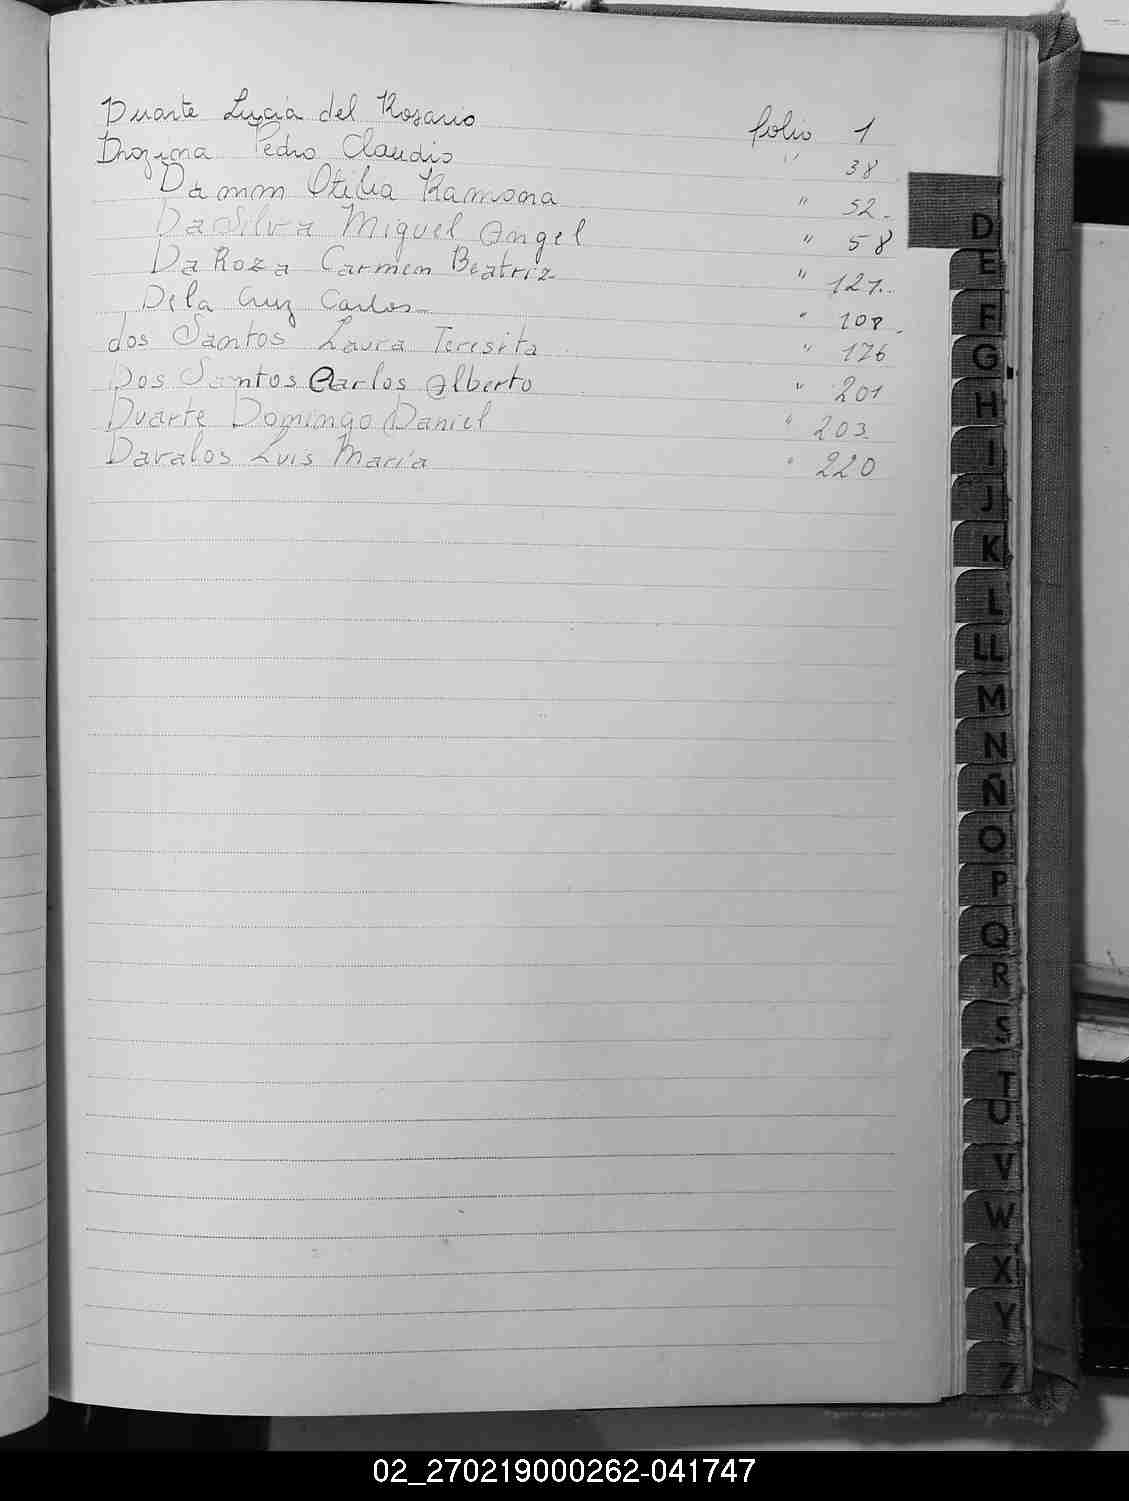 Duarte Lucia del Rosario folio 1
Pedro Claudio " 38
Damm Otilia Ramona " 52.
Da Silva Miguel Angel " 58
Da Roza Carmen Beatriz " 121.
De la Cruz Carlos " 108.
dos Santos Laura Teresita " 176
Dos Santos Carlos Alberto " 201
Duarte Domingo Daniel " 203
Davalos Luis Maria " 220
D
E
F
G
H
I
J
K
L
LL
M
N
Ñ
O
P
Q
R
S
T
U
V
W
X
Y
Z
02_270219000262-041747